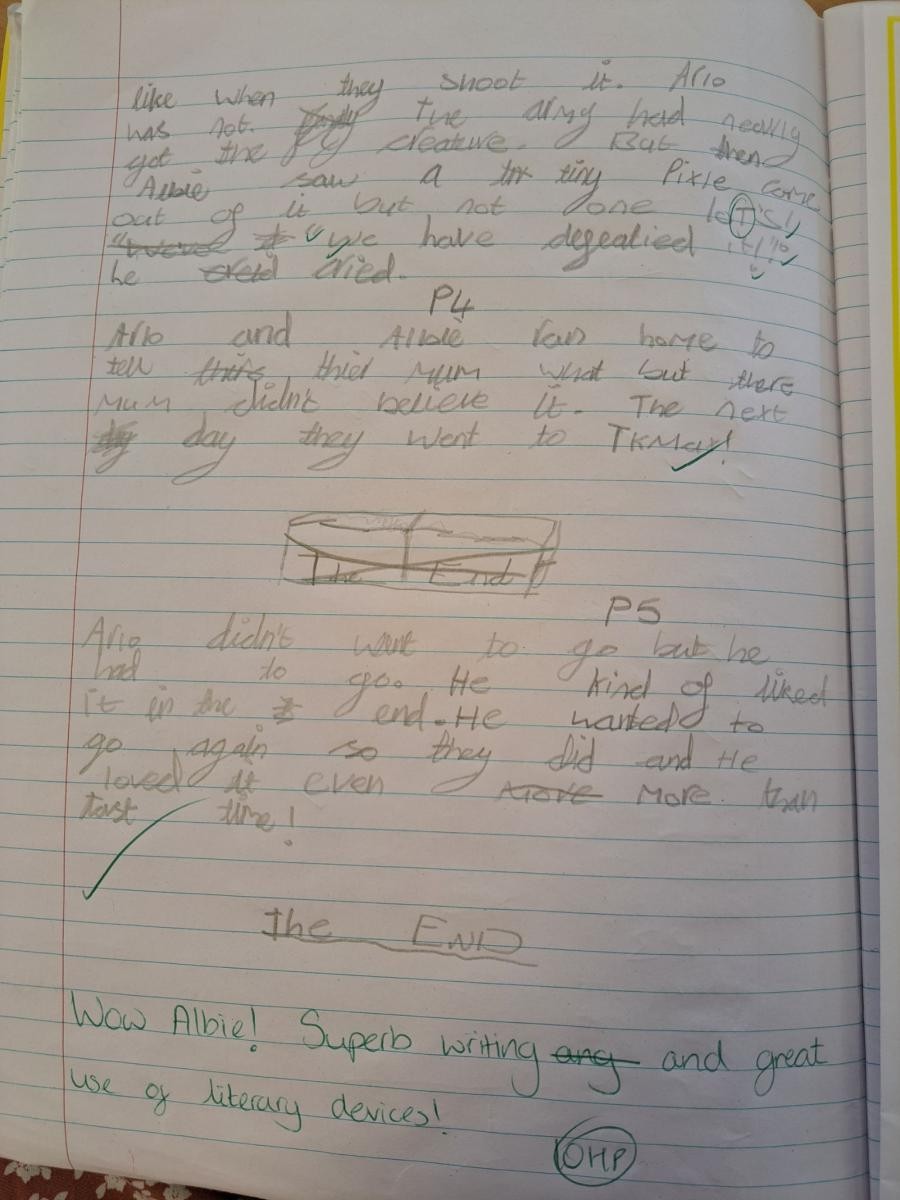 like when they shoot it. Arlo
has not. The army had nearly
got the creature. But then
Albie saw a tiny Pixie come
out of it but not done lots!
"We have defeatied it!"
he cried.
P4
Arlo and Albie ran home to
tell thier Mum what but there
Mum didn't believe it. The next
day they went to TKMax!
The End
P5
Arlo didn't want to go but he
had to go. He kind of liked
it in the end. He wanted to
go again so they did and He
loved it even More than
last time!
The END
Wow Albie! Superb writing ang and great
use of literary devices!
OHP